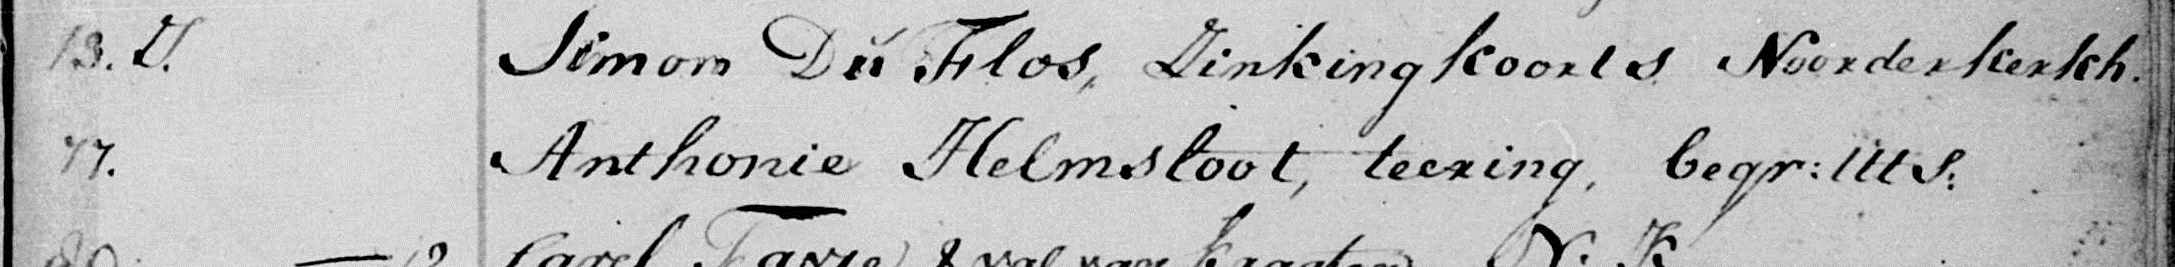 13. J. Simon Du Flos, Zinkingkoorts. Noorderkerkh.
77. Anthonie Helmsloot, teering, begr: ttt S:
Carel N. K